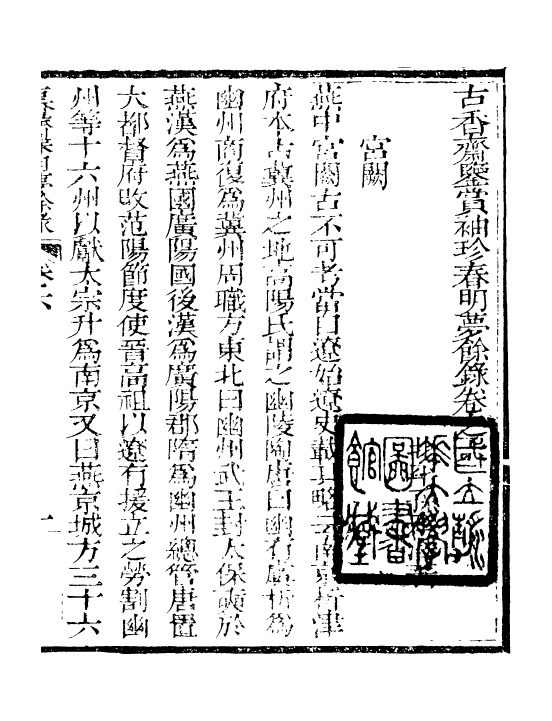 古香齋鑒賞袖珍春明夢餘錄卷之
宮闕
燕中宮闕古不可考當自遼始遼史載其略云南京析津
府本古冀州之地高陽氏謂之幽陵陶唐曰幽有虞析為
幽州商復為冀州周職方東北曰幽州武王封太保奭於
燕漢為燕國廣陽國後漢為廣陽郡隋為幽州總管唐置
大都督府改范陽節度使晉高祖以遼有援立之勞割幽
州等十六州以獻太宗升為南京又曰燕京城方三十六
卷六 一
國立
圖書
館藏